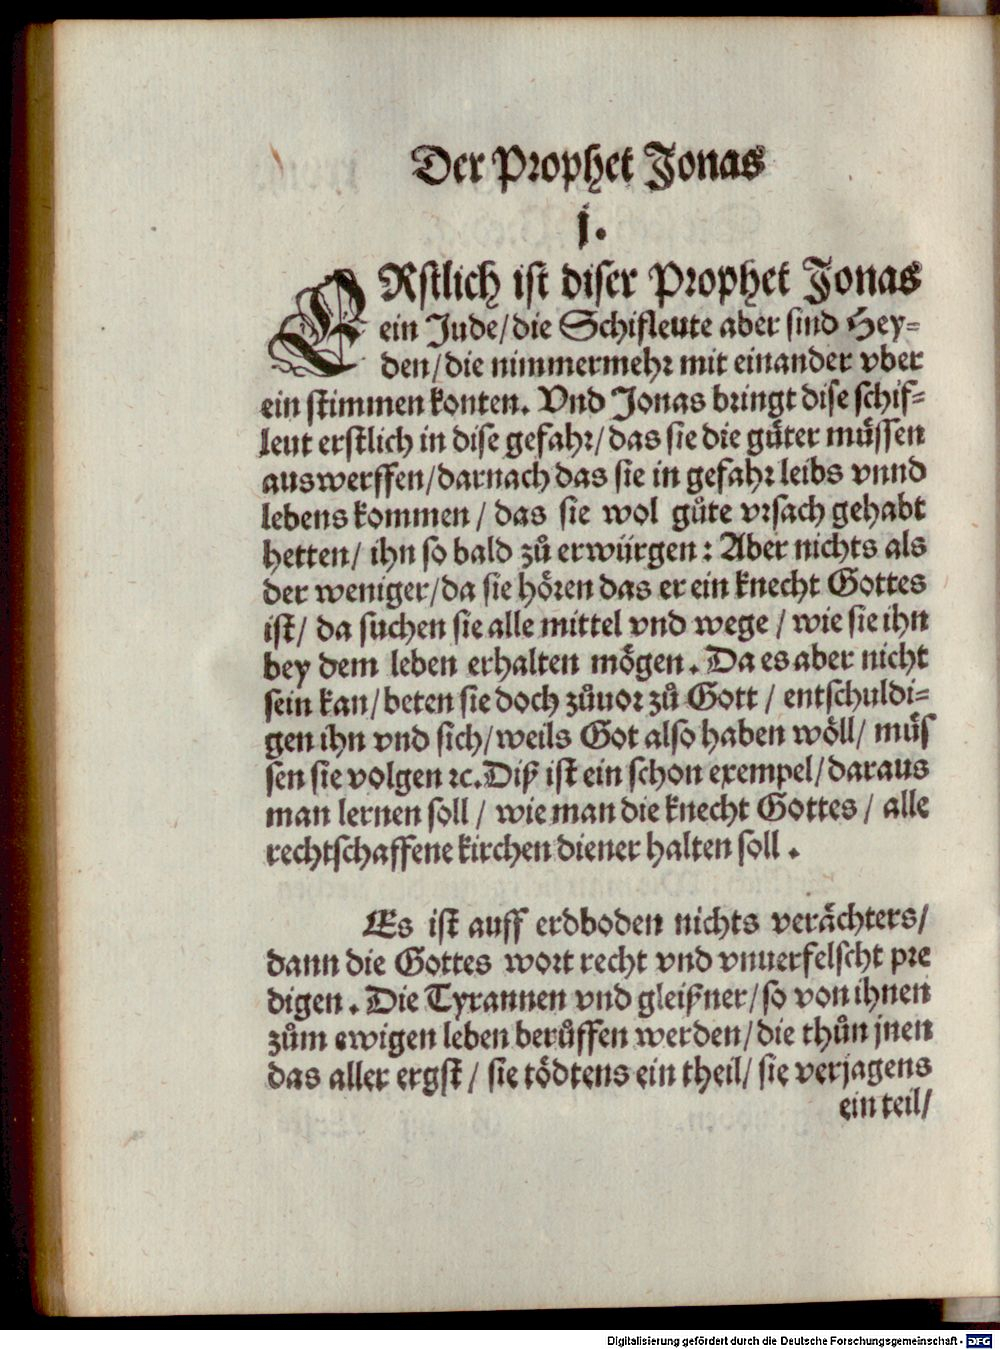 Der Prophet Jonas
j.
ERstlich ist diser Prophet Jonas
ein Jude/die Schifleute aber sind Hey-
den/die nimmermehr mit einander vber
ein stimmen konten. Vnd Jonas bringt dise schif-
leut erstlich in dise gefahr/das sie die gůter müssen
auswerffen/darnach das sie in gefahr leibs vnnd
lebens kommen/ das sie wol gůte vrsach gehabt
hetten/ ihn so bald zů erwürgen: Aber nichts als
der weniger/da sie hören das er ein knecht Gottes
ist/ da suchen sie alle mittel vnd wege/ wie sie ihn
bey dem leben erhalten mögen. Da es aber nicht
sein kan/beten sie doch zůuor zů Gott/ entschuldi-
gen ihn vnd sich/weils Got also haben wöll/ müs
sen sie volgen ꝛc. Diß ist ein schon exempel/daraus
man lernen soll/ wie man die knecht Gottes/ alle
rechtschaffene kirchen diener halten soll.
Es ist auff erdboden nichts verächters/
dann die Gottes wort recht vnd vnuerfelscht pre
digen. Die Tyrannen vnd gleißner/so von ihnen
zům ewigen leben berůffen werden/die thůn jnen
das aller ergst/ sie tödtens ein theil/ sie verjagens
ein teil/
Digitalisierung gefördert durch die Deutsche Forschungsgemeinschaft - DFG